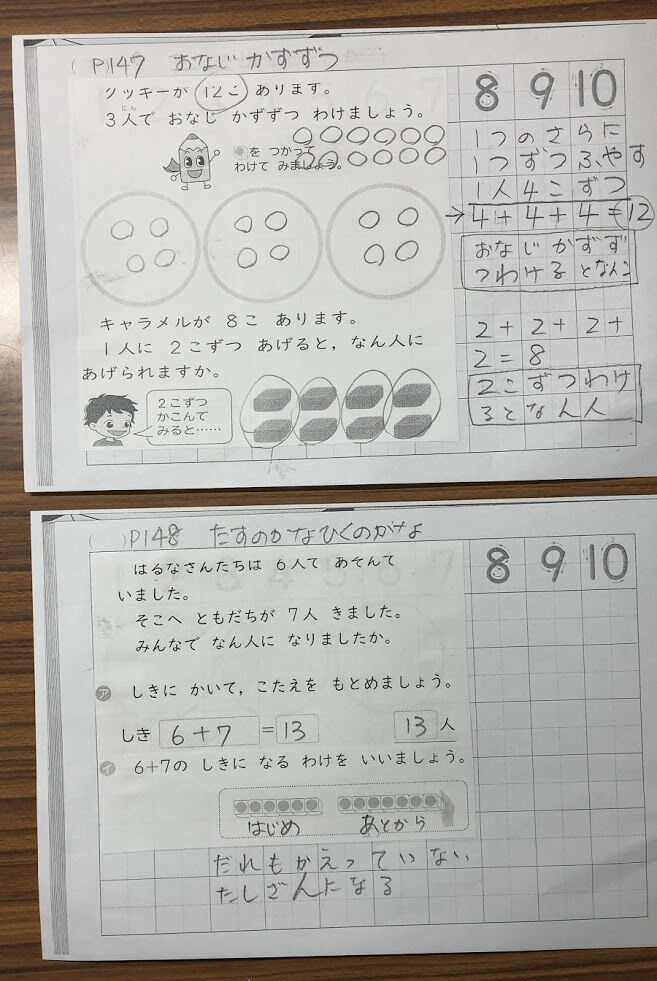 ( P.147 おなじ かずずつ
クッキーが 12こ あります。
3人で おなじ かずずつ わけましょう。
にん
を つかって
わけて みましょう。
キャラメルが 8こ あります。
1人に 2こずつ あげると，なん人に
あげられますか。
2こずつ
かこんで
みると……
8 9 10
1つのさらに
1つずつふやす
1人4こずつ
→4+4+4=12
おなじかずず
つわけるとなんこ
2+2+2+
2=8
2こずつわけ
るとなん人
( )P148 たすのかなひくのかなよ
はるなさんたちは 6人で あそんで
いました。
そこへ ともだちが 7人 きました。
みんなで なん人に なりましたか。
ア しきに かいて，こたえを もとめましょう。
しき 6+7 =13 13人
イ 6+7の しきに なる わけを いいましょう。
はじめ あとから
だれもかえっていない
たしざんになる
8 9 10